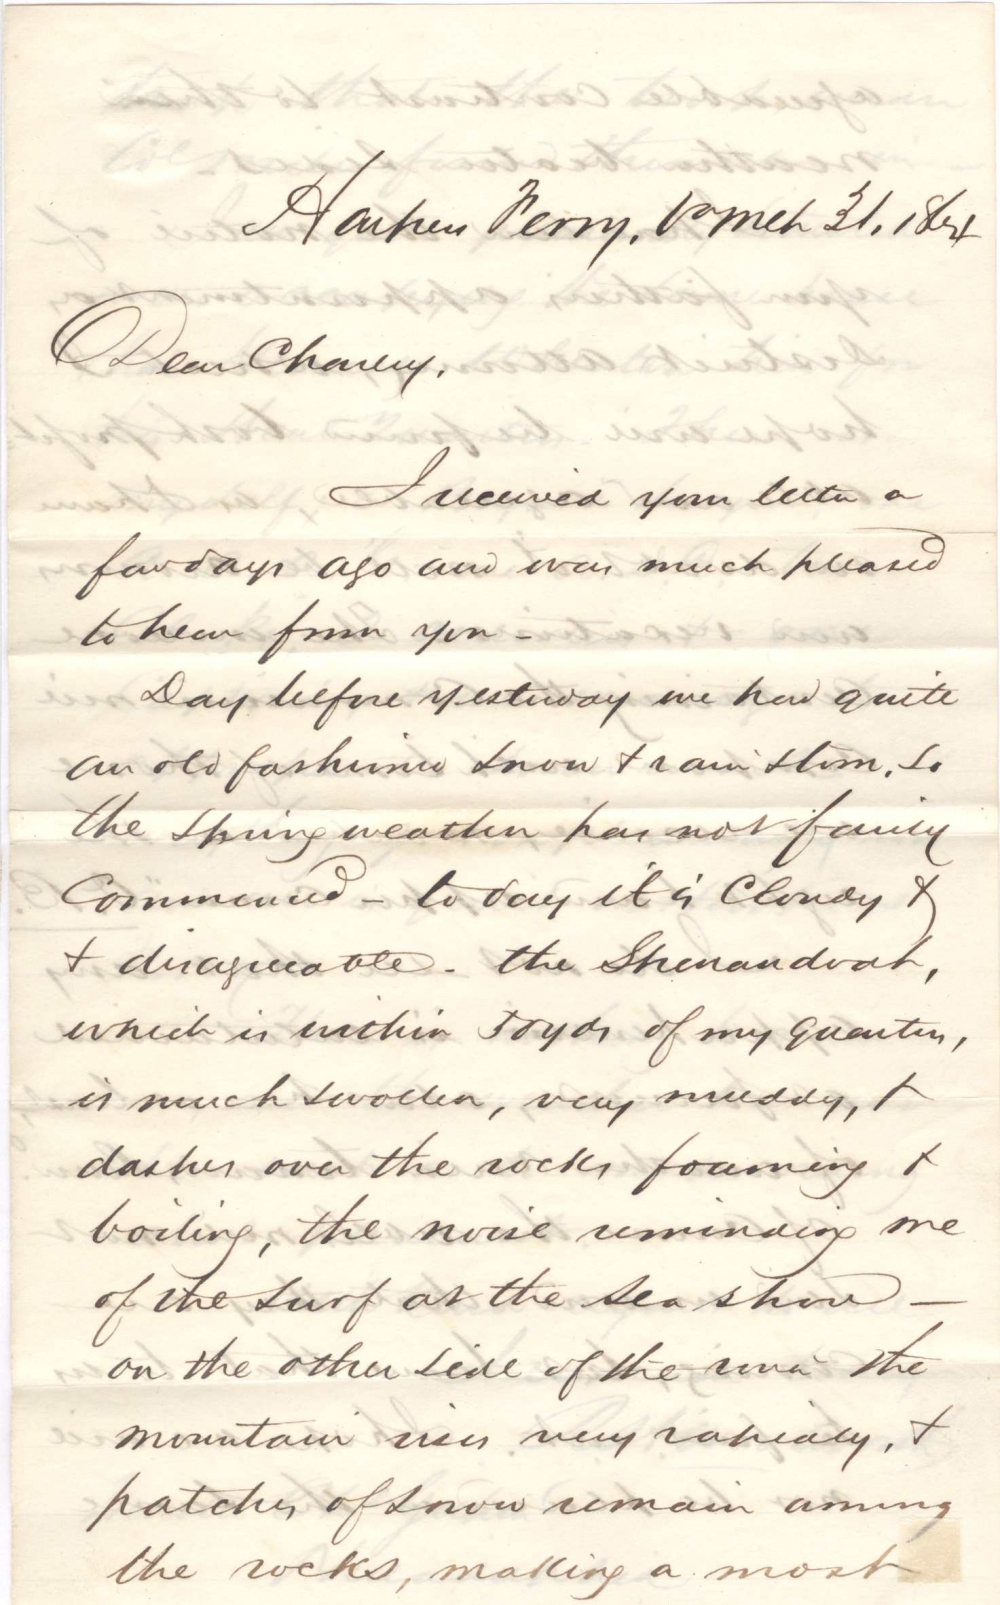 Harpers Ferry, Va Mch 31, 1864
Dear Charley,
I received your letter a
few days ago and was much pleased
to hear from you -
Day before yesterday we had quite
an old fashioned snow & rain storm, so
the spring weather has not fairly
Commenced - to day it is Cloudy &
& disagreeable - the Shenandoah,
which is within 50 yds of my quarters,
is much swollen, very muddy, &
dashes over the rocks foaming &
boiling, the noise reminding me
of the surf at the sea shore -
on the other side of the river the
mountain rises very rapidly, &
patches of snow remain among
the rocks, making a most